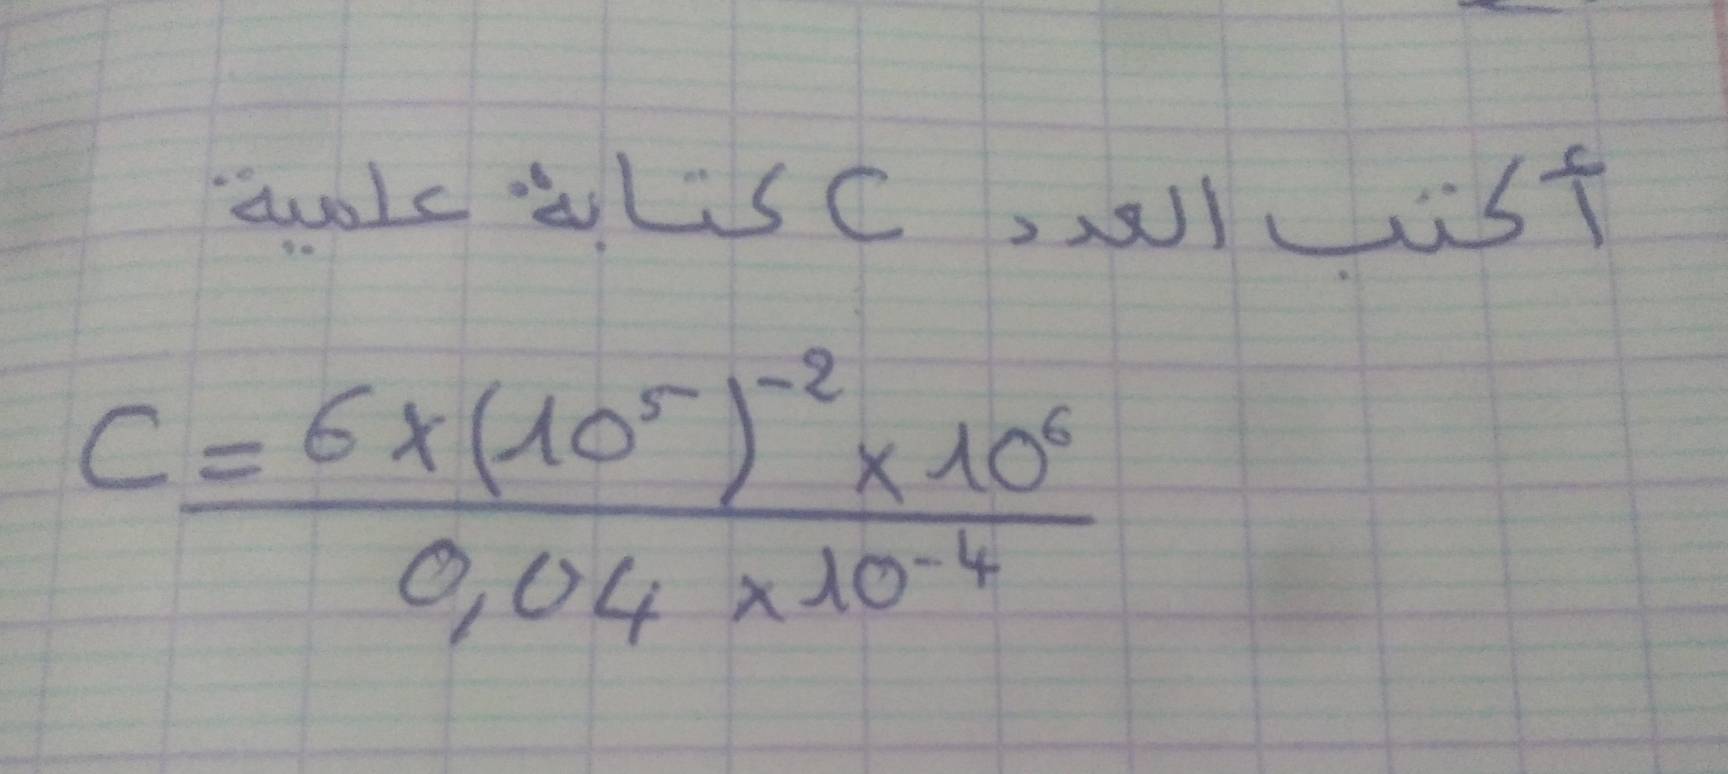 أكتب العدد C كتابة علمية
C = 6 x (10⁵)⁻² x 10⁶
0,04 x 10⁻⁴